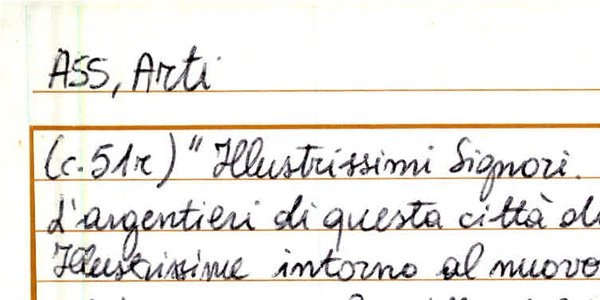 ASS, Arti
(c. 51r) " Illustrissimi Signori.
L'argentieri di questa città di
Illustrissime intorno al nuovo